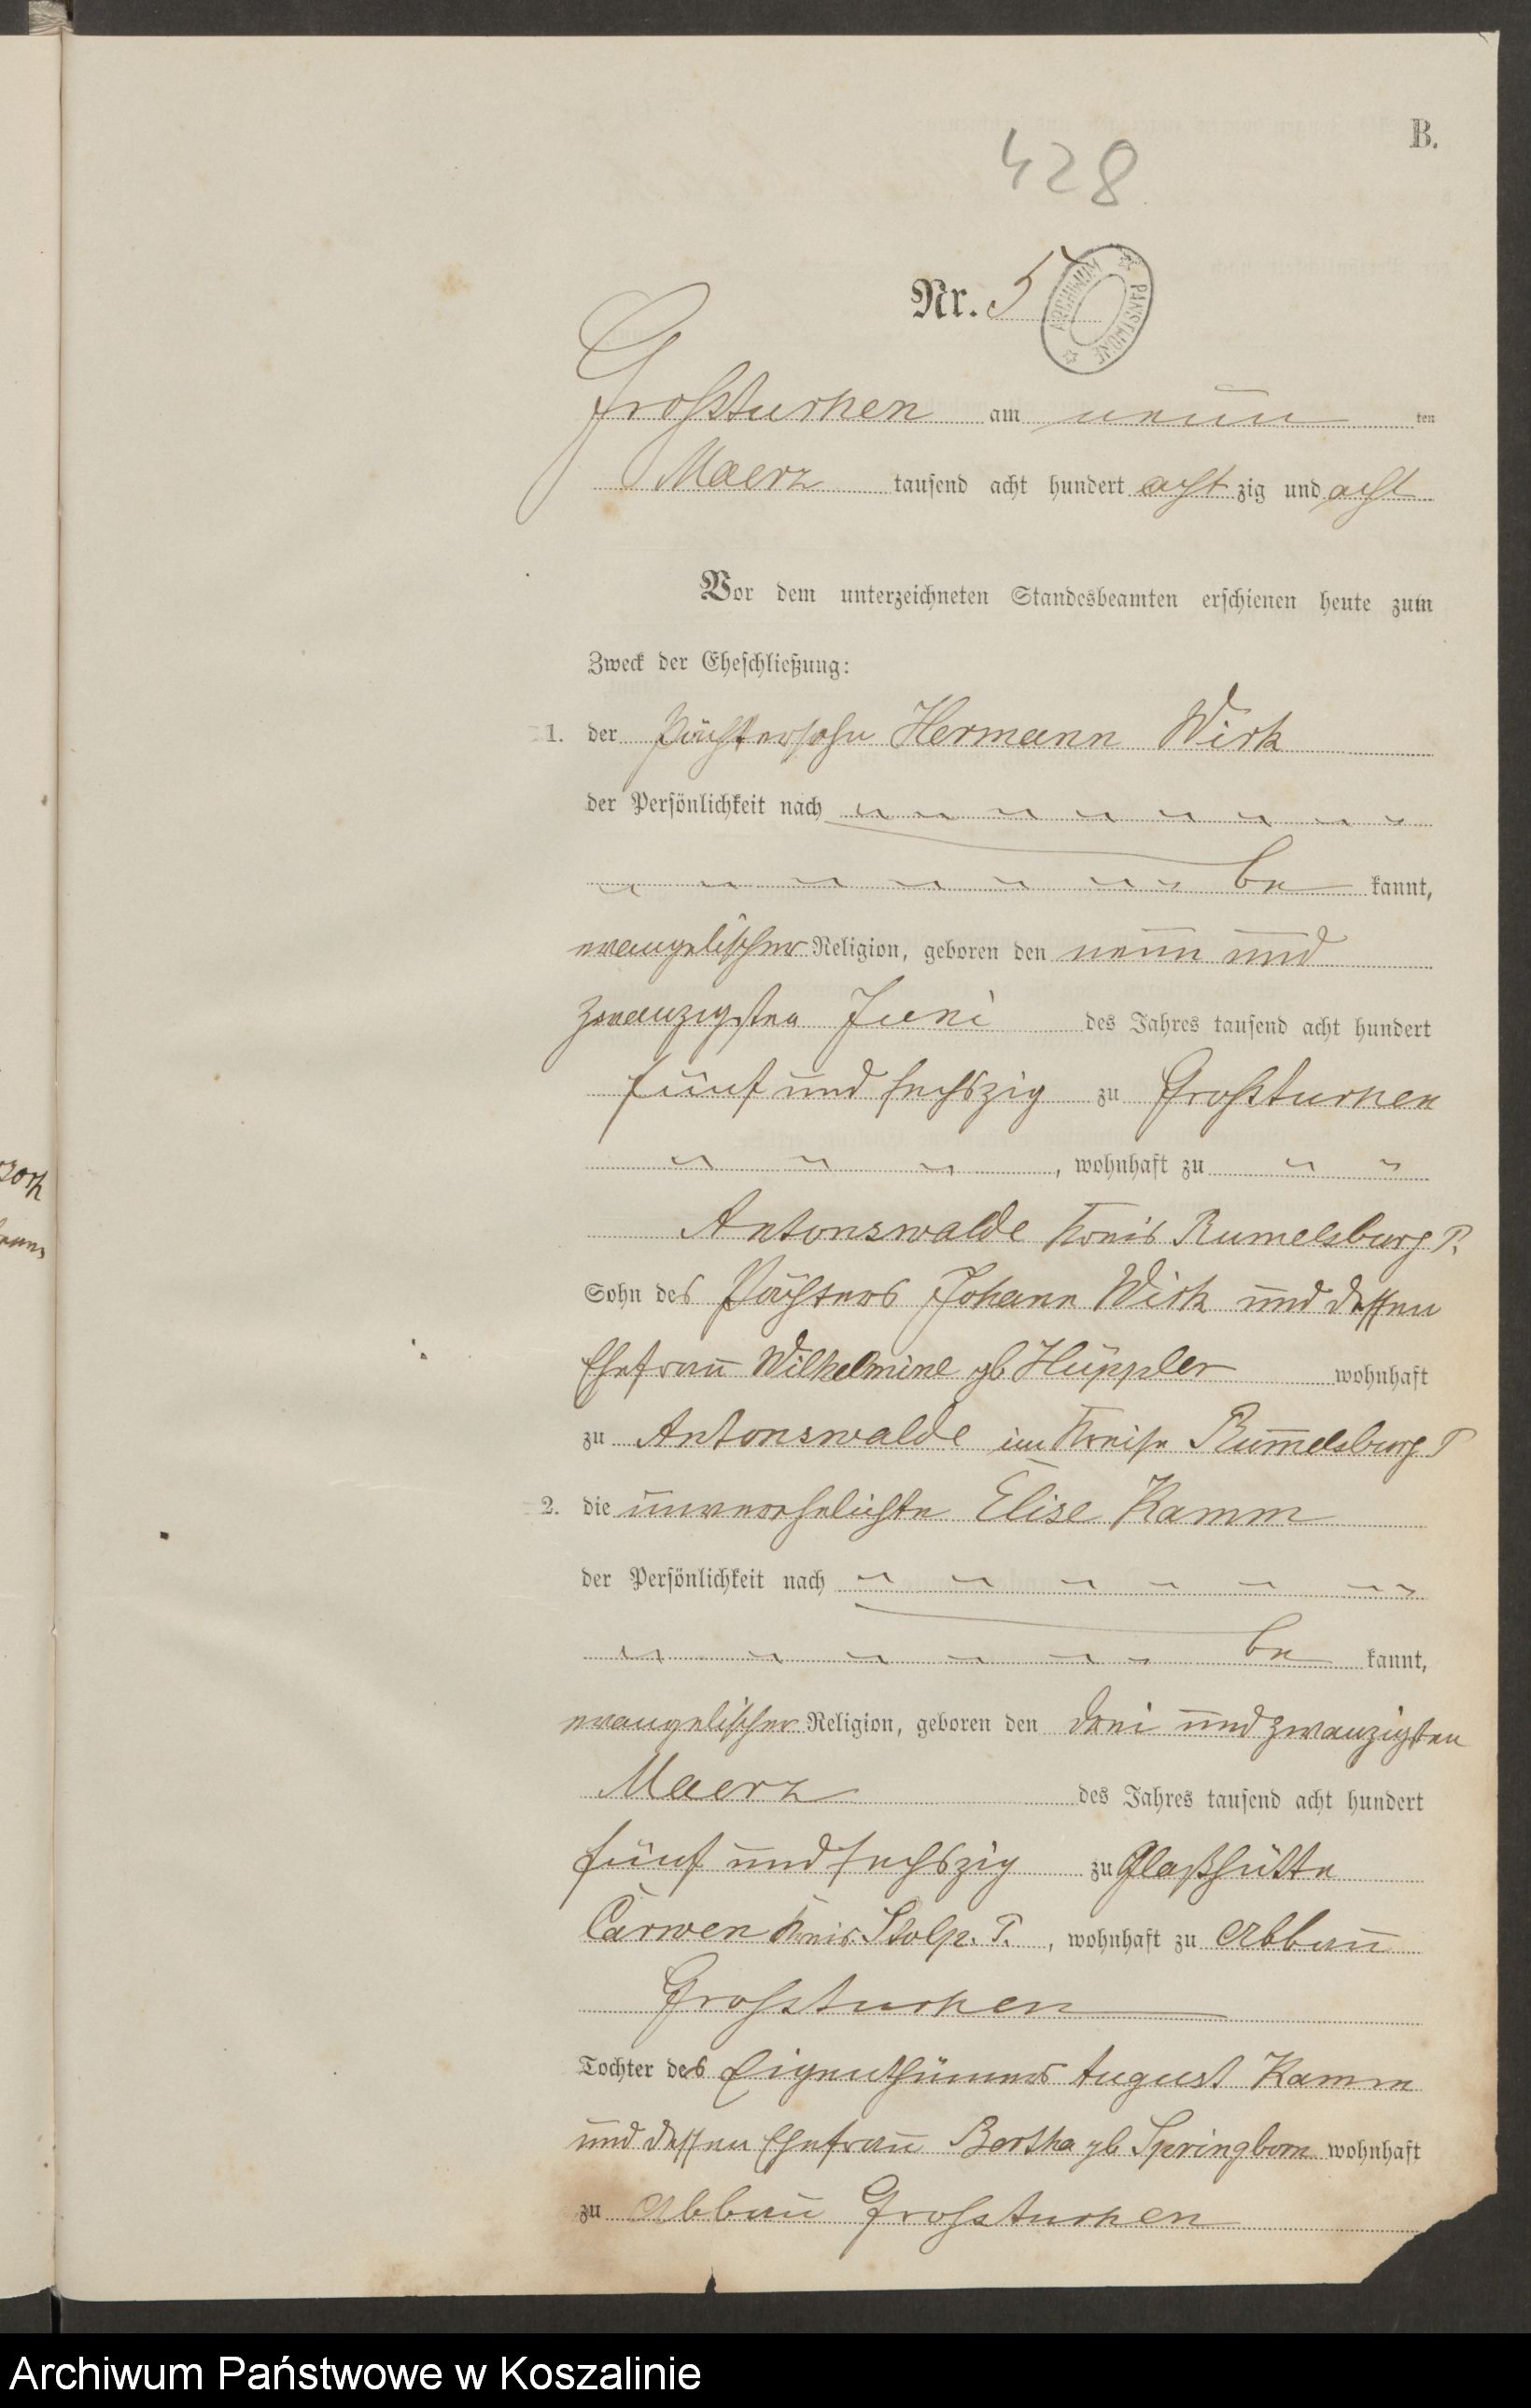 B.
428
Nr. 5
ARCHIWUM PAŃSTWOWE
Großturken am neun ten
Maerz tausend acht hundert acht zig und acht
Vor dem unterzeichneten Standesbeamten erschienen heute zum
Zweck der Eheschließung:
1. der Pächtersohn Hermann Wirk
der Persönlichkeit nach
be kannt,
evangelischer Religion, geboren den neun und
zwanzigsten Juni des Jahres tausend acht hundert
fünf und sechszig zu Großturken
, wohnhaft zu
Antonswalde Kreis Rumelsburg P.
Sohn des Pächters Johann Wirk und dessen
Ehefrau Wilhelmine gb Hüppler wohnhaft
zu Antonswalde im Kreise Rum̅elsburg P
2. die unverehelichte Elise Kamm
der Persönlichkeit nach
be kannt,
evangelischer Religion, geboren den drei und zwanzigsten
Maerz des Jahres tausend acht hundert
fünf und sechszig zu Glaßhütte
Carwen Kreis Stolp. P. , wohnhaft zu Abbau
Grossturken
Tochter des Eigenthümers August Kamm
und dessen Ehefrau Bertha gb Springborn wohnhaft
zu Abbau Grossturken
Archiwum Państwowe w Koszalinie